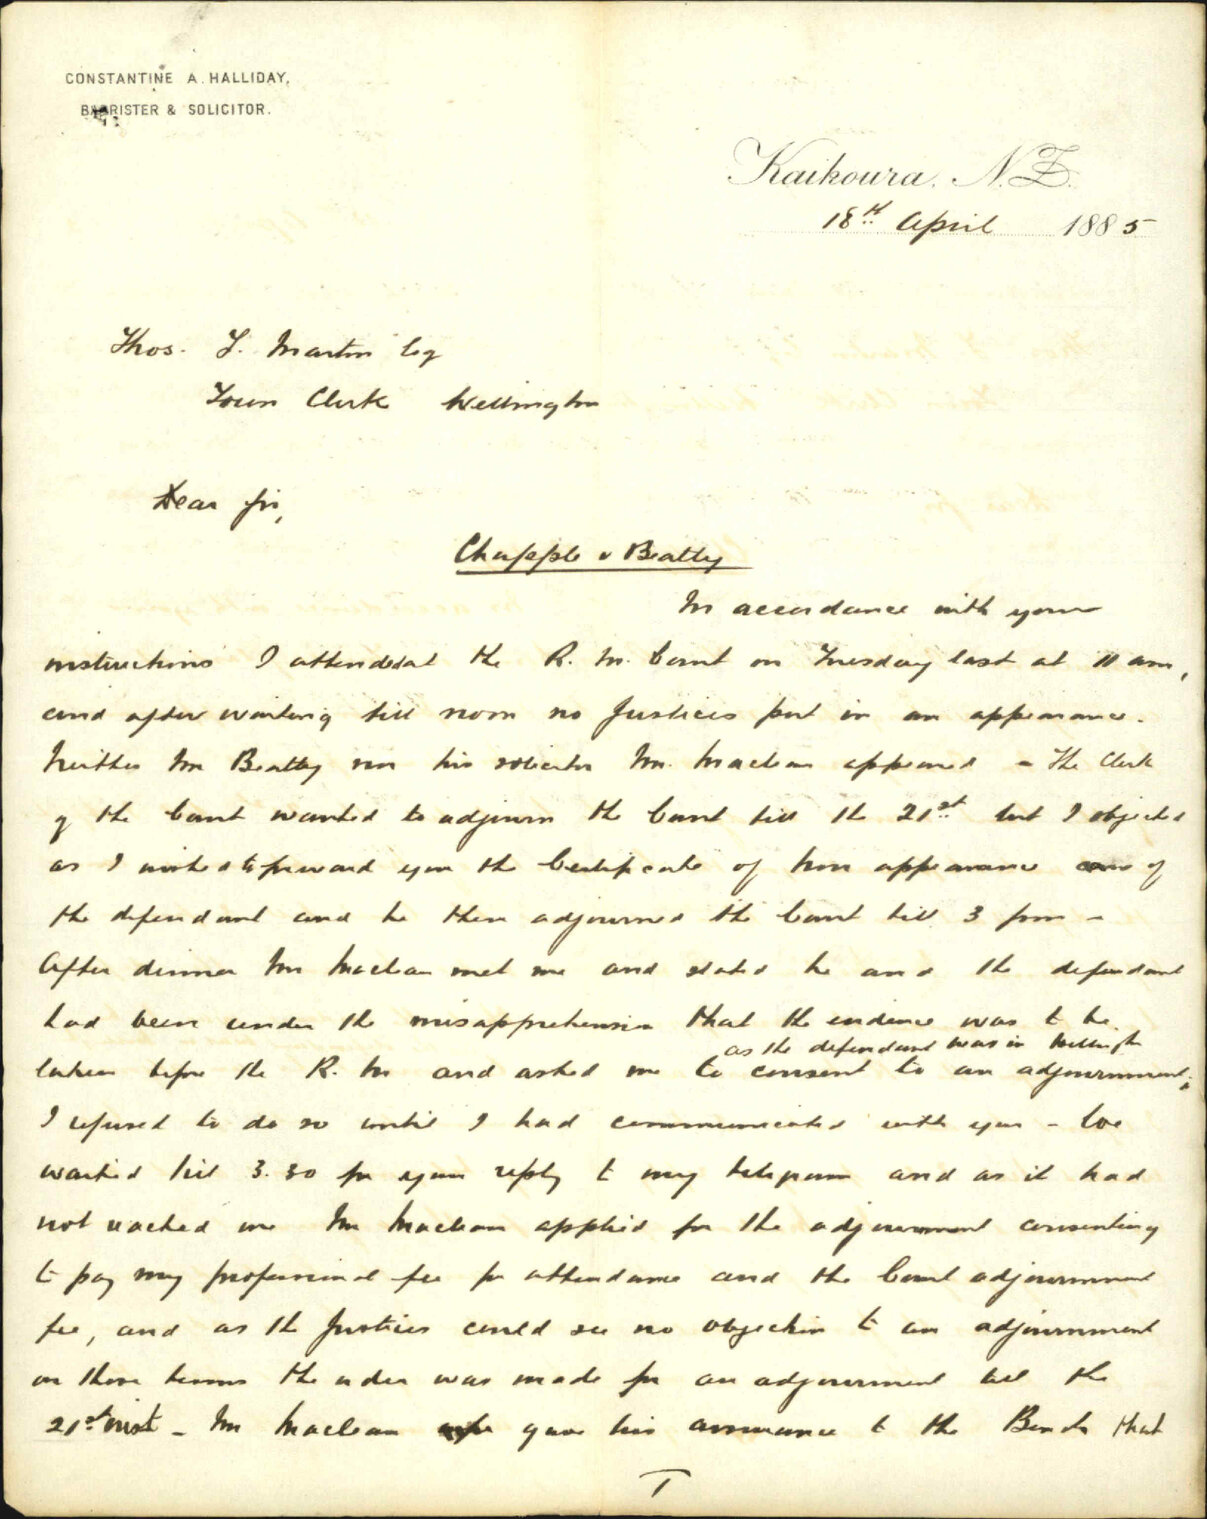 CONSTANTINE A. HALLIDAY,
BARRISTER & SOLICITOR.
Kaikoura, N.Z.
18th April 1885
Thos. F. Martin Esq
Town Clerk Wellington
Dear Sir,
Chapple v Beatty
In accordance with your
instructions I attended at the R. M. Court on Tuesday last at 11 am,
and after waiting till noon no Justices put in an appearance.
Neither Mr Beatty nor his solicitor Mr. Maclean appeared - The Clerk
of the Court wanted to adjourn the Court till the 21st but I objected
as I wished to forward you the Certificate of non appearance of
the defendant and he then adjourned the Court till 3 pm -
After dinner Mr Maclean met me and stated he and the defendant
had been under the misapprehension that the evidence was to be
as the defendant was in Wellington
taken before the R. M and asked me to consent to an adjournment;
I refused to do so until I had communicated with you - We
waited till 3.30 for your reply to my telegram and as it had
not reached me Mr Maclean applied for the adjournment consenting
to pay my professional fee for attendance and the Court adjournment
fee, and as the Justices could see no objection to an adjournment
on those terms the order was made for an adjournment till the
21st inst - Mr Maclean gave his assurance to the Bench that